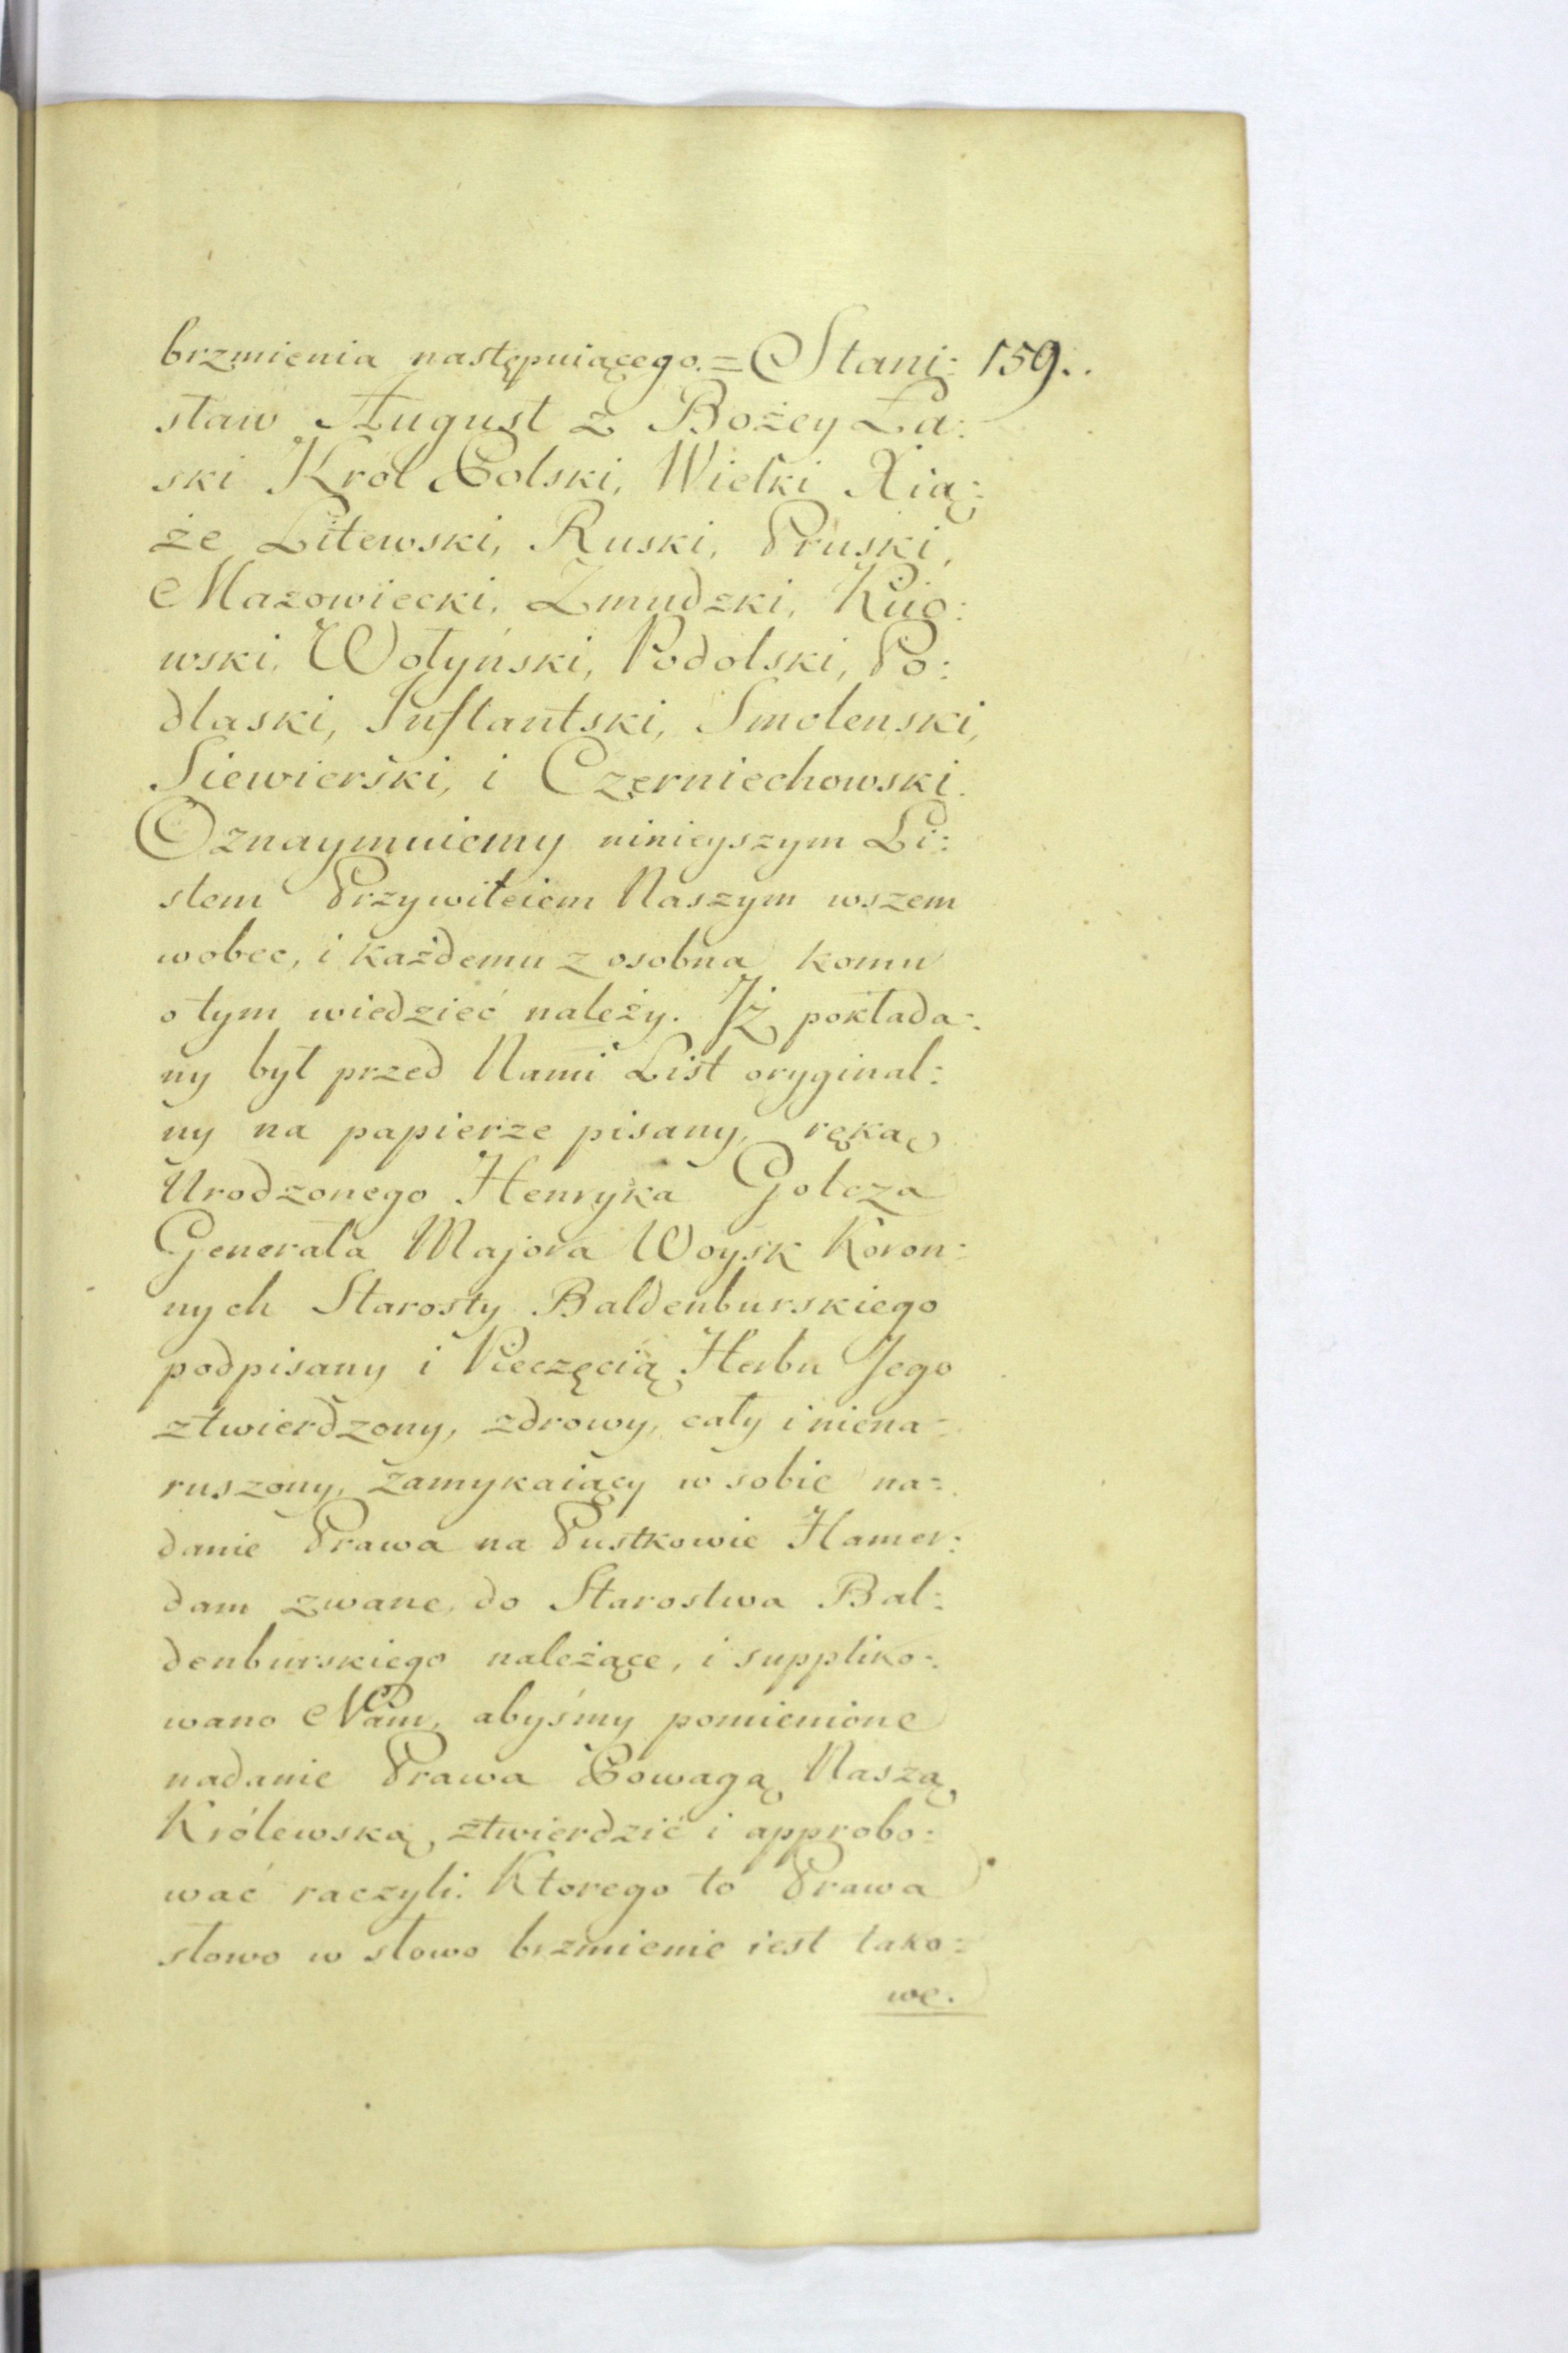 brzmienia następuiącego. = Stani: 159..
sław August z Bożey Ła:
ski Król Polski, Wielki Xią:
że Litewski, Ruski, Pruski,
Mazowiecki, Zmudzki, Kiio:
wski, Wołyński, Podolski, Po:
dlaski, Inflantski, Smolenski,
Siewierski, i Czerniechowski.
Oznaymuiemy ninieyszym Li:
stem Przywileiem Naszym wszem
wobec, i każdemu z osobna komu
o tym wiedzieć należy. Jż pokłada:
ny był przed Nami List oryginal:
ny na papierze pisany, ręką
Urodzonego Henryka Golcza
Generała Majora Woysk Koron:
nych Starosty Baldenburskiego
podpisany i Pieczęcią Herbu Jego
ztwierdzony, zdrowy, cały i niena:
ruszony, zamykaiący w sobie na:
danie Prawa na Pustkowie Hamer:
dam zwane, do Starostwa Bal:
denburskiego należące, i suppliko:
wano Nam, abyśmy pomienione
nadanie Prawa Powagą Naszą
Królewską ztwierdzić i approbo:
wać raczyli. Ktorego to Prawa
słowo w słowo brzmienie iest tako:
we.